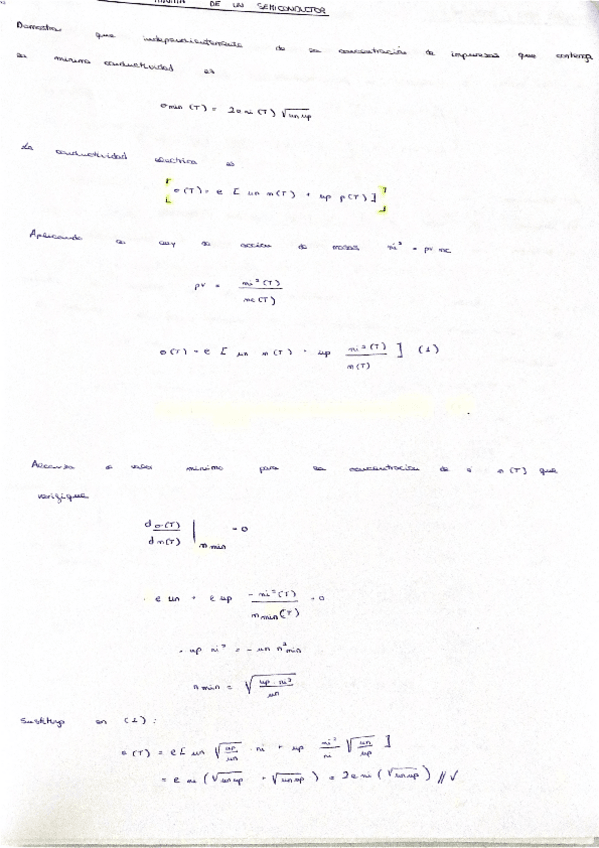 DE UN SEMICONDUCTOR
Demostrar que independientemente de la concentración de impurezas que contenga
la mínima conductividad es
σmin (T) = 2eni (T) √unup
La conductividad eléctrica es
[σ(T) = e [ un n(T) + up p(T)]]
Aplicando la ley de acción de masas ni² = pv nc
pv = ni²(T) / nc(T)
σ(T) = e [ un n(T) + up ni²(T) / n(T) ] (1)
Alcanza el valor mínimo para la concentración de n(T) que
verifique
dσ(T) / dn(T) | n min = 0
e un + e up - ni²(T) / n min(T) = 0
- up ni² = - un n²min
n min = √(up · ni² / un)
Sustituyo en (1) :
σ(T) = e[ un √(up/un) · ni + up ni²/ni √(un/up) ]
= e ni (√unup + √unup) = 2eni (√unup) // √